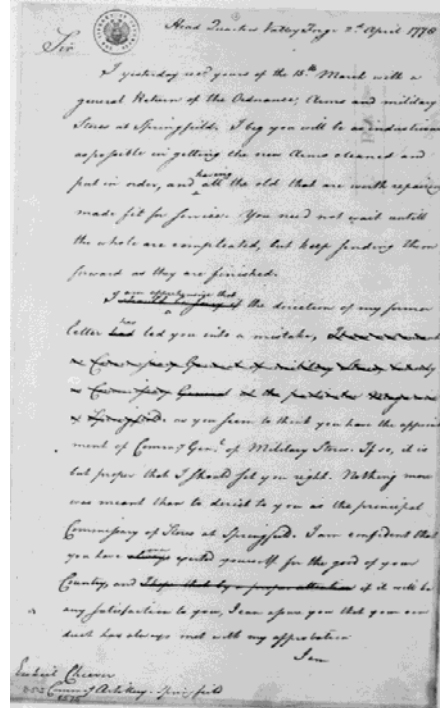 Head Quarters Valley Forge 2d April 1778
Sir
I yesterday recd yours of the 18th March with a
general Return of the Ordnance, Arms and military
Stores at Springfield. I beg you will be as industrious
as possible in getting the new Arms cleaned and
having
put in order, and all the old that are worth repairing
made fit for service. You need not wait untill
the whole are compleated, but keep sending them
forward as they are finished.
I am apprehensive that
the direction of my former
has
letter had led you into a mistake,
Military
General
Springfield. as you seem to think you have the appoint
ment of Commy Genl of Military Stores. If so, it is
but proper that I should set you right. Nothing more
was meant than to direct to you as the principal
Commissary of Stores at Springfield. I am confident that
you have always exerted yourself for the good of your
Country, and I hope that by a proper attention if it will be
any satisfaction to you, I can assure you that your con
duct has always met with my approbation
I am
Ezekiel Cheever
Commy of Artillery Springfield